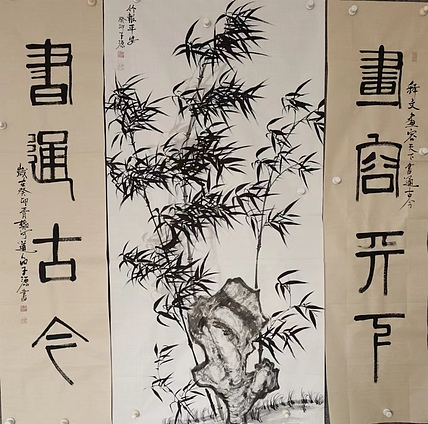 畫容天下
释文畫容天下書通古今
竹報平安
癸卯子
書通古今
歲在癸卯
書